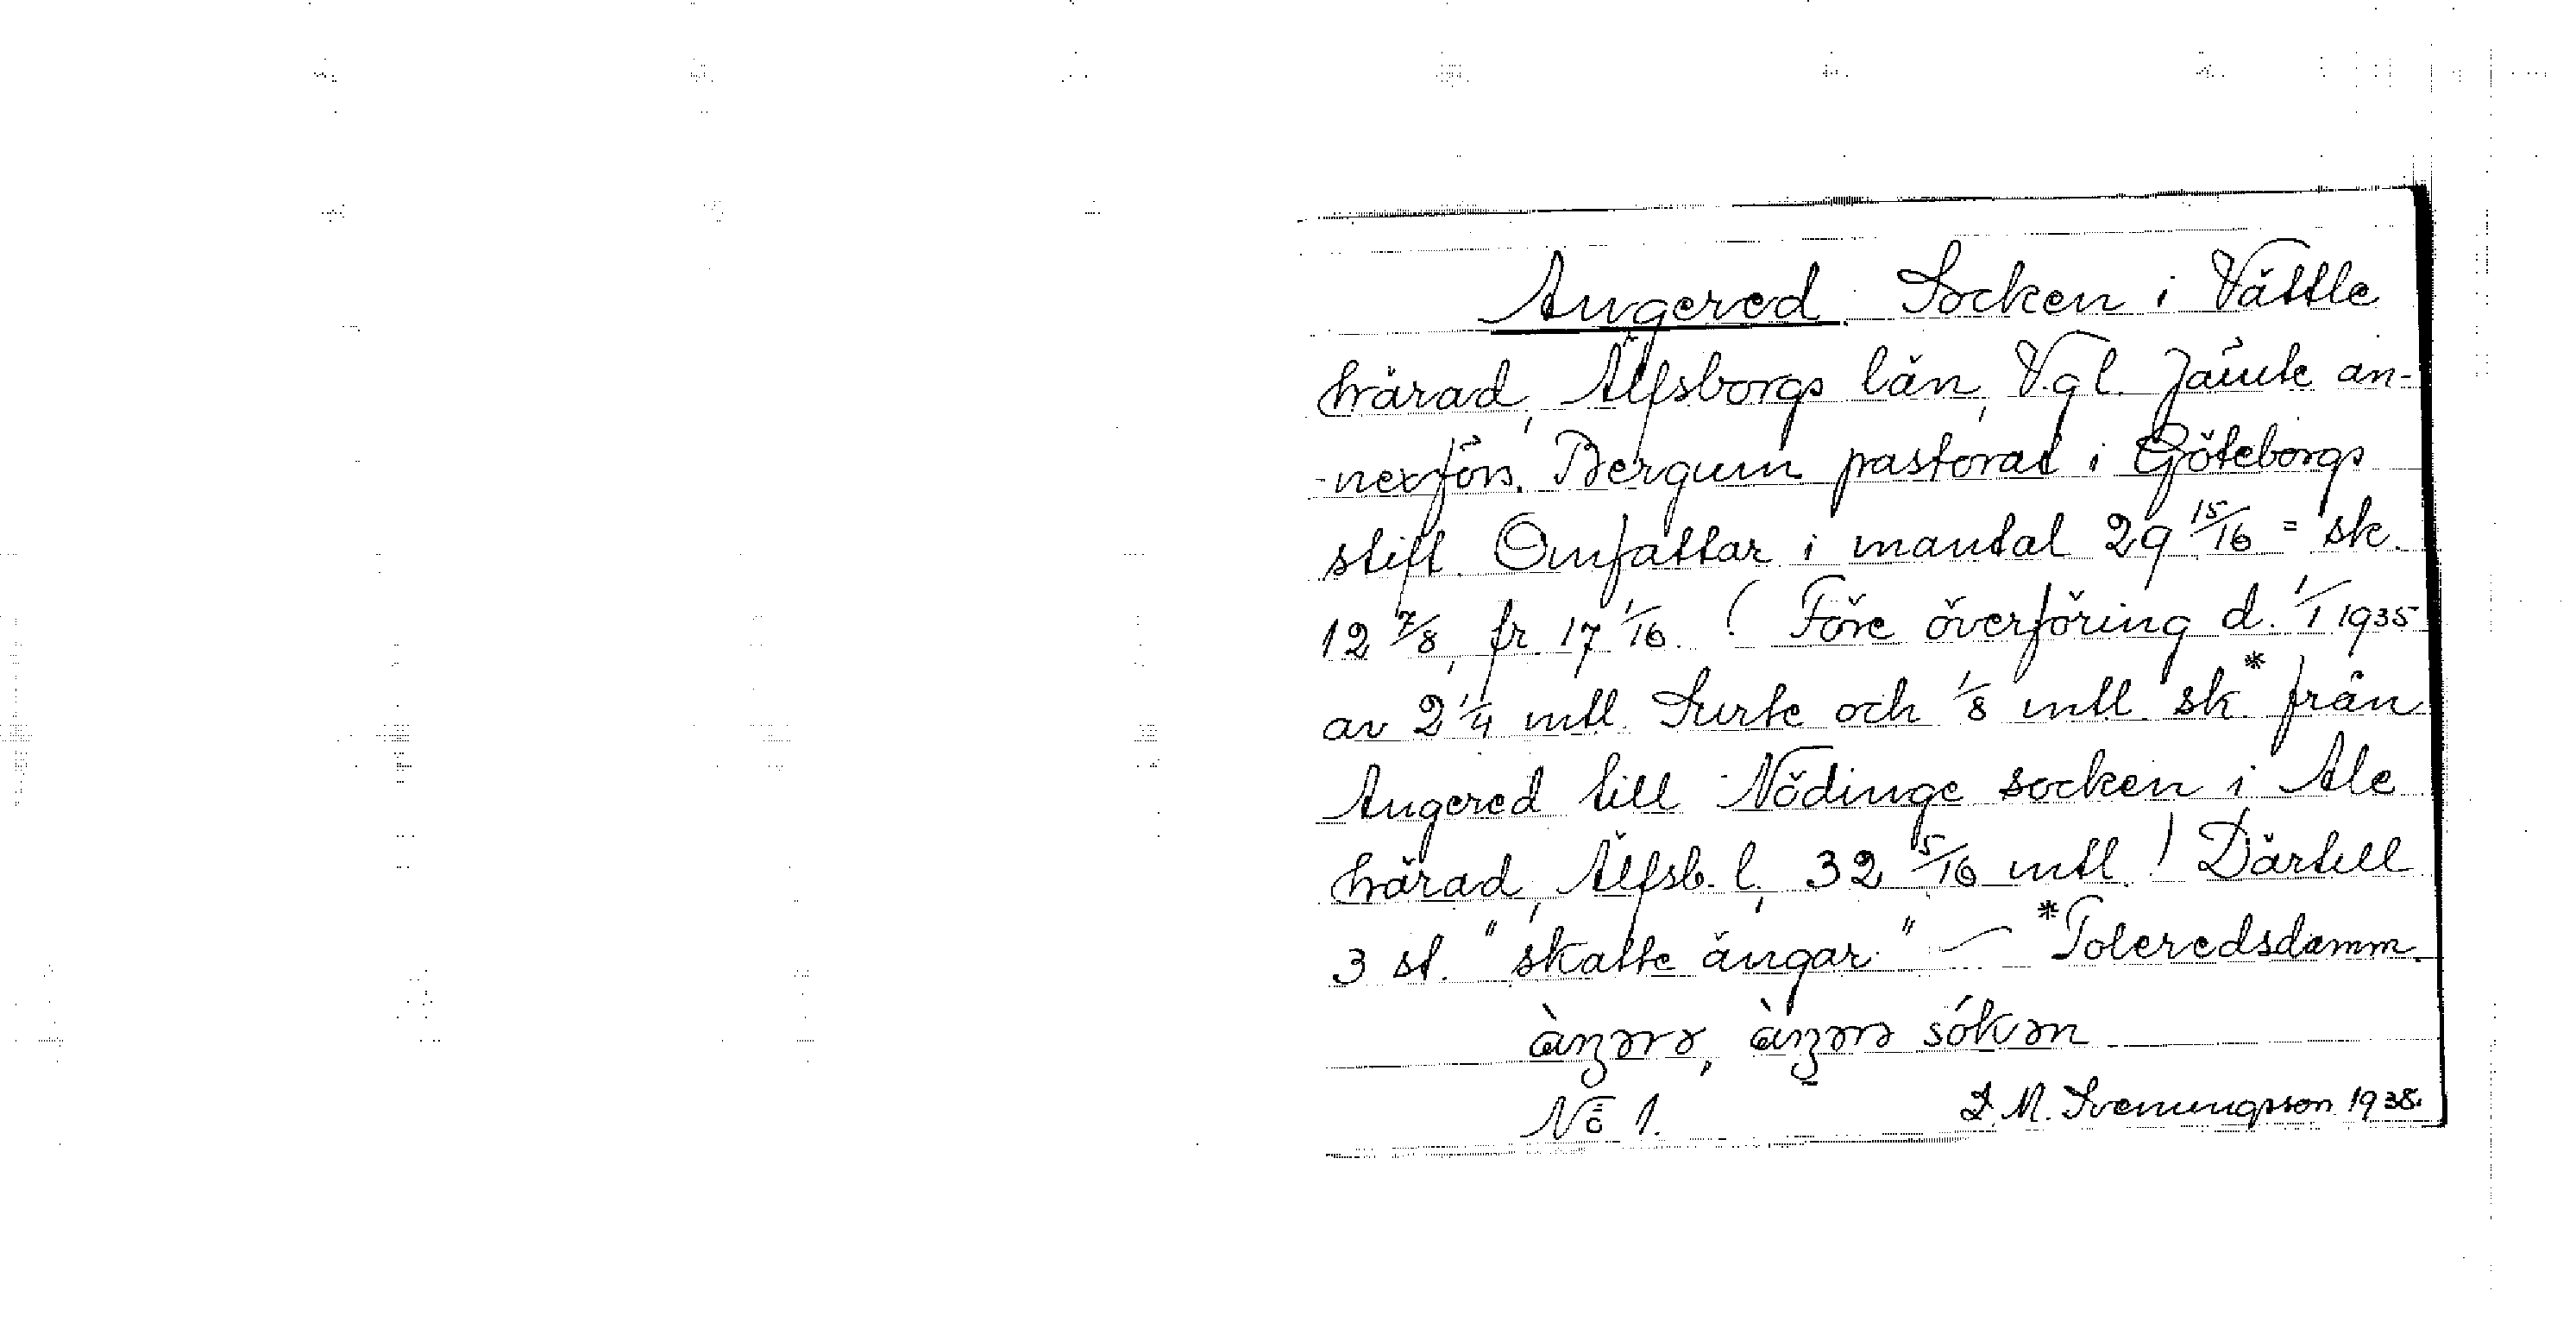 Angered. Socken i Vättle
härad, Älfsborgs län, Vgl. Jämte an-
-nexförs. Bergum pastorat i Göteborgs
stift. Omfattar i mantal 29 15/16 = sk.
12 7/8, fr. 17 1/16. (Före överföring d. 1/1 1935
av 2 1/4 mtl. Surte och 1/8 mtl. sk.* från
Angered till Nödinge socken i Ale
härad, Älfsb. l., 32 5/16 mtl.) Därtill
3 st. "skatte ängar." — *Toleredsdamm.
sókən
No 1.
M. Svenungsson 1938.